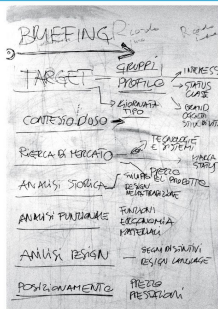 BRIEFING
TARGET
GRUPPI
PROFILO
GIORNATA TIPO
STATUS
BRAND
OGGETTI
CONTESTO D'USO
RICERCA DI MERCATO
TECNOLOGIE
E SISTEMI
MARCA
STATUS
PREZZO
ANALISI STORICA
SVILUPPO DEL PRODOTTO
DESIGN
ANALISI FUNZIONALE
FUNZIONI
ERGONOMIA
MATERIALI
ANALISI DESIGN
SEGNI DISTINTIVI
DESIGN LANGUAGE
POSIZIONAMENTO
PREZZO
PRESTAZIONI